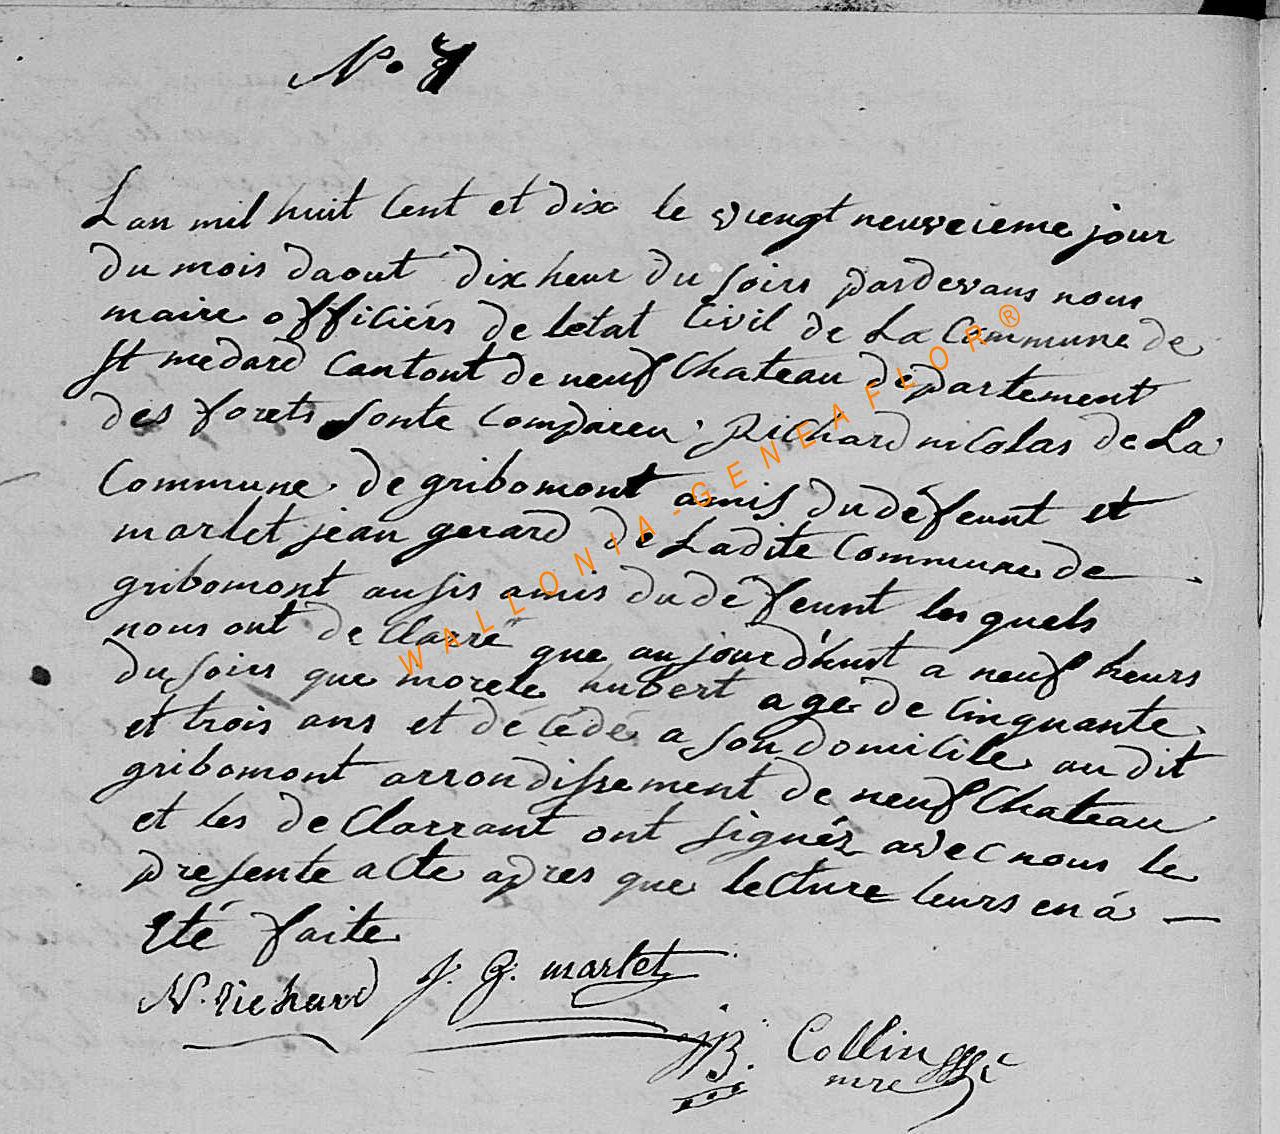 N°. 7
Lan mil huit Cent et dix le viengt neuveieme jour
du mois daout dix heur du soirs pardevans nous
maire officiérs de letat Civil de La Commune de
St medard Cantont de neufChateau departement
des forets sonte Compareu Richard nicolas de La
Commune de gribomont amis du défeunt et
marlet jean gerard de Ladite Commune de
gribomont ausis amis du défeunt les quels
nous ont de Clarré que aujourdhuit a neuf heurs
du soirs que morete hubert agé de Cinquante
et trois ans et décédé a son domicile audit
gribomont arrondissement de neufChateau
et les de Clarrant ont signéz avec nous le
presente aCte apres que lecture leurs en á —
Eté faite
N. richard J. G. marlet
JB. Collin
mre
WALLONIA-GENEAFLOR®